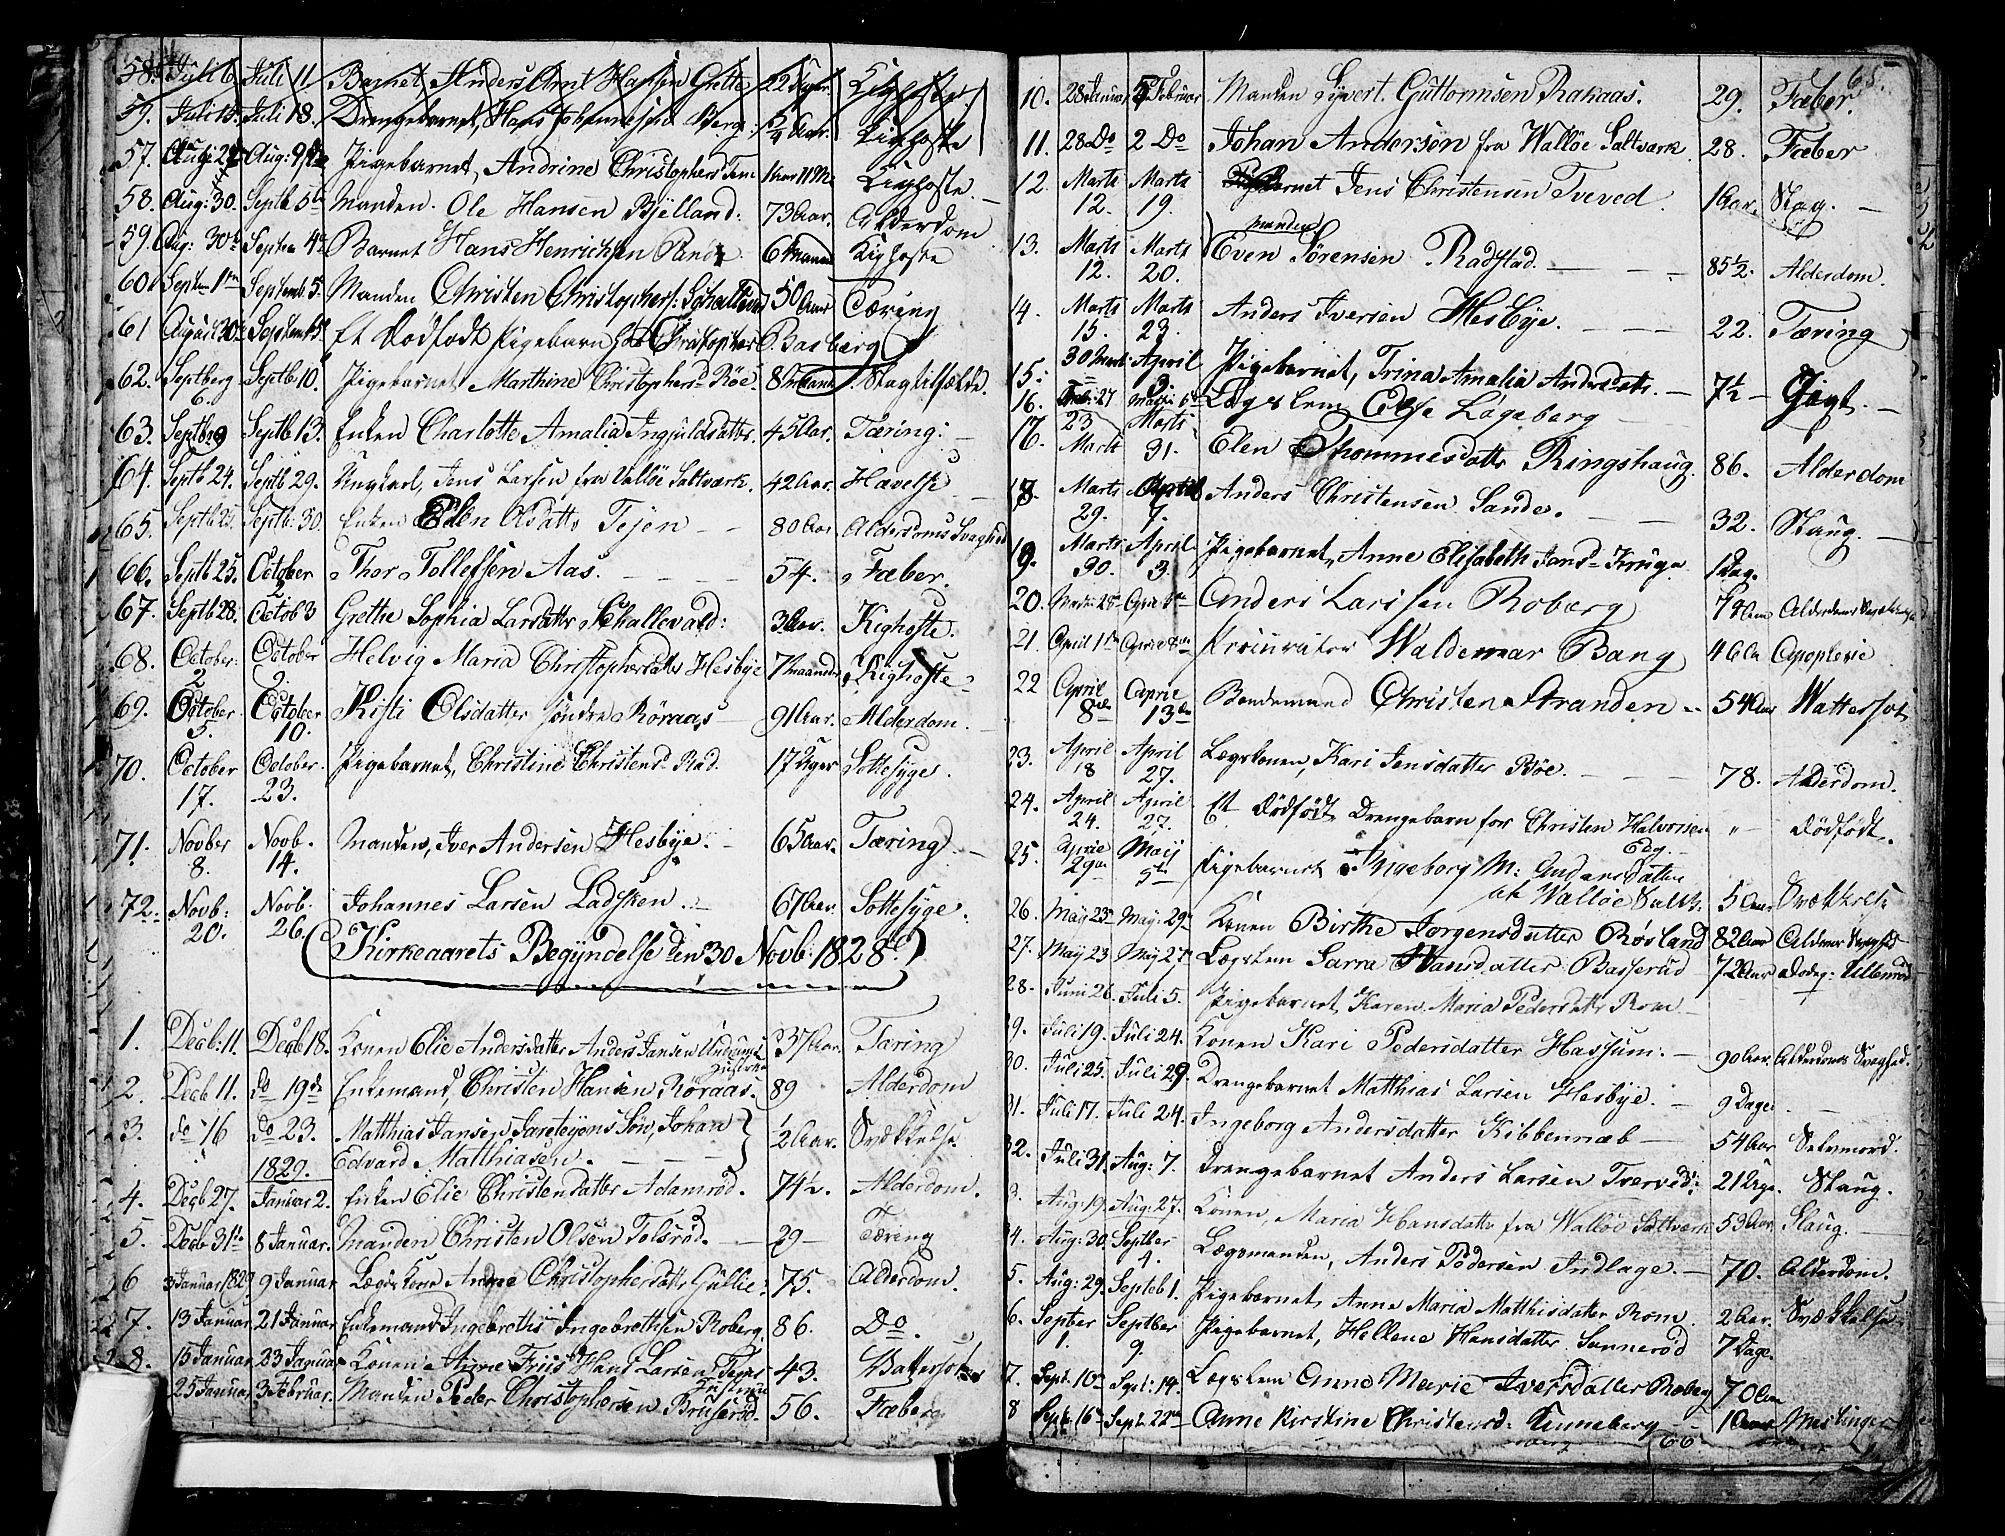 58. Juli 6. Juli 11 Barnet, Anders Arnt Hansen Grette 22 Uger. Kighoste.
59. Juli 14. Juli 18. Drengebarnet, Hans Johannesen Berg. Aar. Kighoste
57. Aug: 2 Aug: 9 Pigebarnet, Andrine Christophers Tem 1 aar 11 M. Kighoste.
58. Aug: 30. Septb 5te Manden. Ole Hansen Bjelland: 73 Aar. Alderdom.
59. Aug: 30te Septem 4te Barnet Hans Henrichsen Rande 6 Maaned Kighoste
60 Septem 1ten Septemb 5. Manden Christen Christophers: Schallevold 50 Aar Tæring
61 August 30te Septem 5te Et Dödfödt Pigebarn Christopher Basberg
62. Septberg 6. Septb 10. Pigebarnet Marthine Christophersd Röe. 8 Maaned Slagtilfælde.
63. Septb 9 Septb 13. Enken Charlotte Amalia Ingvaldsdatter. 45 Aar. Tæring.
64. Septb 24. Septb 29. Ungkarl, Jens Larsen fra Vallöe Saltværk. 42 Aar. Hævelse
65. Septb 25. Septb: 30. Enken Elen Olsdatter Tejen 80 Aar Alderdoms Svaghed
66. Septb 25. October 2 Thor Tollefsen Aas. 54. Fæber.
67. Septb 28. Octob 3 Grethe Sophia Larsdatter Schallevald: 3 Aar. Kighoste.
68. October 2 October 9. Helvig Maria Christophersdatter Hesbye 7 maaneder Kighoste.
69. October 5. October 10. Kisti Olsdatter söndre Röraas 91 Aar. Alderdom.
70. October 17. October 23. Pigebarnet, Christine Christensd. Rad. 17 Uger Sottesyge.
71. Novber 8. Novb. 14. Manden, Iver Andersen Hesbye. 65 Aar. Tæring
72. Novb: 20. Novb. 26. Johannes Larsen Ladsken. 67 Aar. Sottesyge.
Kirkeaarets Begÿndelse den 30 Novb: 1828.
1. Decb: 11. Decb 18. Konen Elie Andersdatter Anders Jansen 37 Aar. Tæring
2. Decb 11. do 19de Enkemand, Christen Hansen Röraas. 89 Alderdom
3. do 16 do 23. Matthias Jansen Jareteyens Sön, Johan ½ Aar. Svækkelse
1829. Edvard Matthiasen.
4. Decb 27. Januar 2. Enken Elie Christensdatter Adamröd. 74½. Alderdom.
5. Decb 31te 8 Januar. Manden Christen Olsen Tolsröd. 29 Tæring
6 3 Januar 1829 9 Januar Lægdskone Anne Christophersdatter Gullie: 75. Alderdom.
7. 13 Januar 21 Januar Enkemand Ingebreth Ingebrethsen Roberg. 86. Do.
8. 15 Januar 23 Januar Konen Anne Friis Hans Larsen Tejer 43. Vattersot
25 Januar 3 Februar. Manden Peder Christophersen Bruseröd. 56. Fæber
65.
10. 28 Januar 5 Februar Manden Syvert. Guttormsen Rakaas. 29. Fæber.
11. 28 Do 2 Do Johan Andersen fra Walløe Saltværk 28. Fæber
12. Marts 12. Marts 19. Jens Christensen Tveved. 1 Aar. Slag.
13. Marts 12. Marts 20. manden Even Sörensen Radstad. 85½. Alderdom.
14. Marts 15. Marts 23. Anders Iversen Hesbye. 22. Tæring
15. 30 Marts April 3. Pigebarnet, Trina Amalia Andersdatr. 7½ Gigt.
16. 27 Lægslem Else Løgeberg
17. 23 Marts Marts 31. Elen Thommesdatter Ringshaug. 86. Alderdom
18. Marts 29. April 7. Anders Christensen Sande. 32. Slaug.
19. Marts 30. April 3. Pigebarnet, Anne Elisabeth Jansd. Kruge 1 Dag.
20. Marts 28 April Anders Larssen Roberg Alderdoms
21. April 1ste April 8de Procurator Waldemar Bang 46 Aar Apoplexie
22 April 8de April 13de Bondemand Christen Stranden 54 Aar Wattersot
23. April 18 April 27. Lægskonen, Kari Jensdatter Röe. 78. Alderdom.
24. April 24. April 27. Et Dödfödt Drengebarn for Christen Halvorsen Eeg. " Dödfödt.
25. April 29de Maij 5te Pigebarnet Ingeborg M: Gudersdatter
ak Walløe Saltv. 5 Aar Svækkelse
26. Maÿ 23 Maÿ 29 Konen Birthe Jørgensdatter Røsland 82 Aar Alderdoms Svaghed
27. Maÿ 23 Maÿ 27 Lægslem Sarra Hansdatter Basserud 72 Aar
28. Juni 26. Juli 5. Pigebarnet, Karen Maria Pedersdatter Rom
9. Juli 19. Juli 24. Konen Kari Pedersdatter Hassum. 90 Aar. Alderdoms Svaghed.
30. Juli 25. Juli 29. Drengebarnet Matthias Larsen Hesbye. 9 Dage
31. Juli 17. Juli 24. Ingeborg Andersdatter Kibbenæb 54 Aar Selvmord.
32. Juli 31. Aug: 7. Drengebarnet Anders Larsen Tverved: 21 Uge. Slaug.
3. Aug: 19. Aug: 27. Konen, Maria Hansdatter fra Walløe Saltværk 53 Aar. Slaug.
4. Aug: 30. Septber 4. Lægsmanden, Anders Pedersen Indlage. 70. Alderdom.
5. Aug: 29. Septeb 1. Pigebarnet, Anne Maria Matthisdatter Rom. 2 Aar. Svækkelse
6. Septber 1. Septber 9. Pigebarnet, Hellene Hansdatter Sannerød 7 Dage.
7. Sept. 10 Sept: 14. Lægslem Anne Marie Iversdatter Roberg 70 Aar
8 Septb. 16 Sept. 22 Anne Kirstine Christensd: Linneberg 1 Aar Meslinger
66